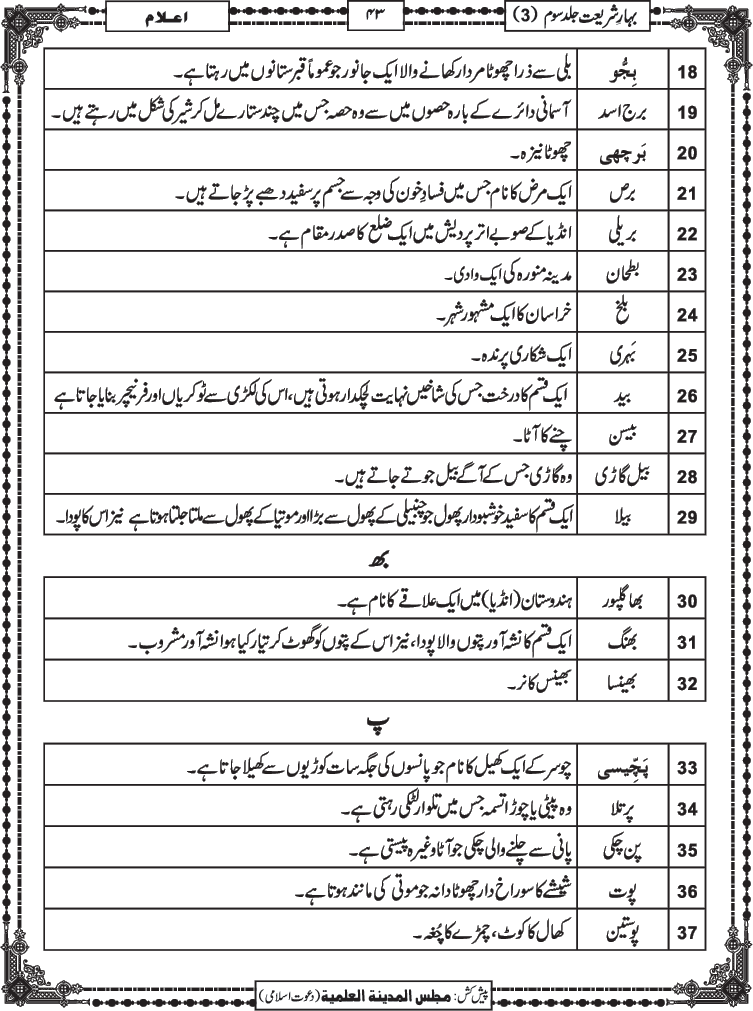 بہار شریعت جلد سوم (3)
۴۳
اعلام
18 بِجُّو بلی سے ذرا چھوٹا مردار کھانے والا ایک جانور جو عموماً قبرستانوں میں رہتا ہے۔
19 برج اسد آسمانی دائرے کے بارہ حصوں میں سے وہ حصہ جس میں چند ستارے مل کر شیر کی شکل میں رہتے ہیں۔
20 بَرچھی چھوٹا نیزہ۔
21 برص ایک مرض کا نام جس میں فسادِ خون کی وجہ سے جسم پر سفید دھبے پڑ جاتے ہیں۔
22 بریلی انڈیا کے صوبے اتر پردیش میں ایک ضلع کا صدر مقام ہے۔
23 بطحان مدینہ منورہ کی ایک وادی۔
24 بلخ خراسان کا ایک مشہور شہر۔
25 بَہری ایک شکاری پرندہ۔
26 بید ایک قسم کا درخت جس کی شاخیں نہایت لچکدار ہوتی ہیں، اس کی لکڑی سے ٹوکریاں اور فرنیچر بنایا جاتا ہے
27 بیسن چنے کا آٹا۔
28 بیل گاڑی وہ گاڑی جس کے آگے بیل جوتے جاتے ہیں۔
29 بیلا ایک قسم کا سفید خوشبودار پھول جو چنبیلی کے پھول سے بڑا اور موتیا کے پھول سے ملتا جلتا ہوتا ہے نیز اس کا پودا۔
بھ
30 بھاگلپور ہندوستان (انڈیا) میں ایک علاقے کا نام ہے۔
31 بھنگ ایک قسم کا نشہ آور پتوں والا پودا، نیز اس کے پتوں کو گھوٹ کر تیار کیا ہوا نشہ آور مشروب۔
32 بھینسا بھینس کا نر۔
پ
33 پَچِّیسی چوسر کے ایک کھیل کا نام جو پانسوں کی جگہ سات کوڑیوں سے کھیلا جاتا ہے۔
34 پرتلا وہ پیٹی یا چوڑا تسمہ جس میں تلوار لٹکی رہتی ہے۔
35 پن چکی پانی سے چلنے والی چکی جو آٹا وغیرہ پیستی ہے۔
36 پوت شیشے کا سوراخ دار چھوٹا دانہ جو موتی کی مانند ہوتا ہے۔
37 پوستین کھال کا کوٹ، چمڑے کا چُغہ۔
پیش کش: مجلس المدينة العلمية (دعوت اسلامی)